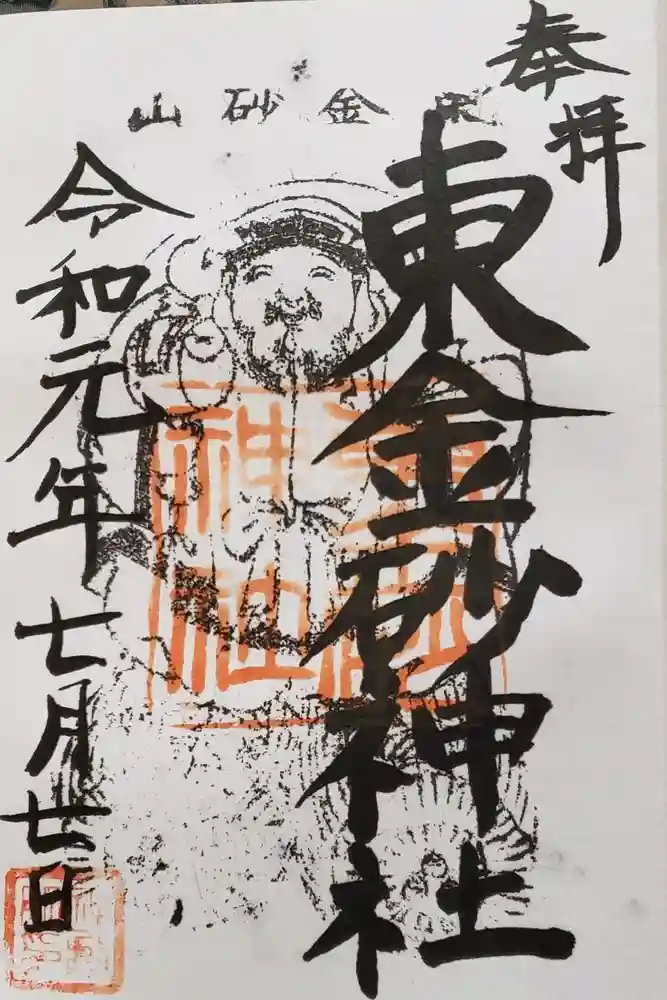 奉拝
東金砂神社
東金砂山
令和元年七月七日